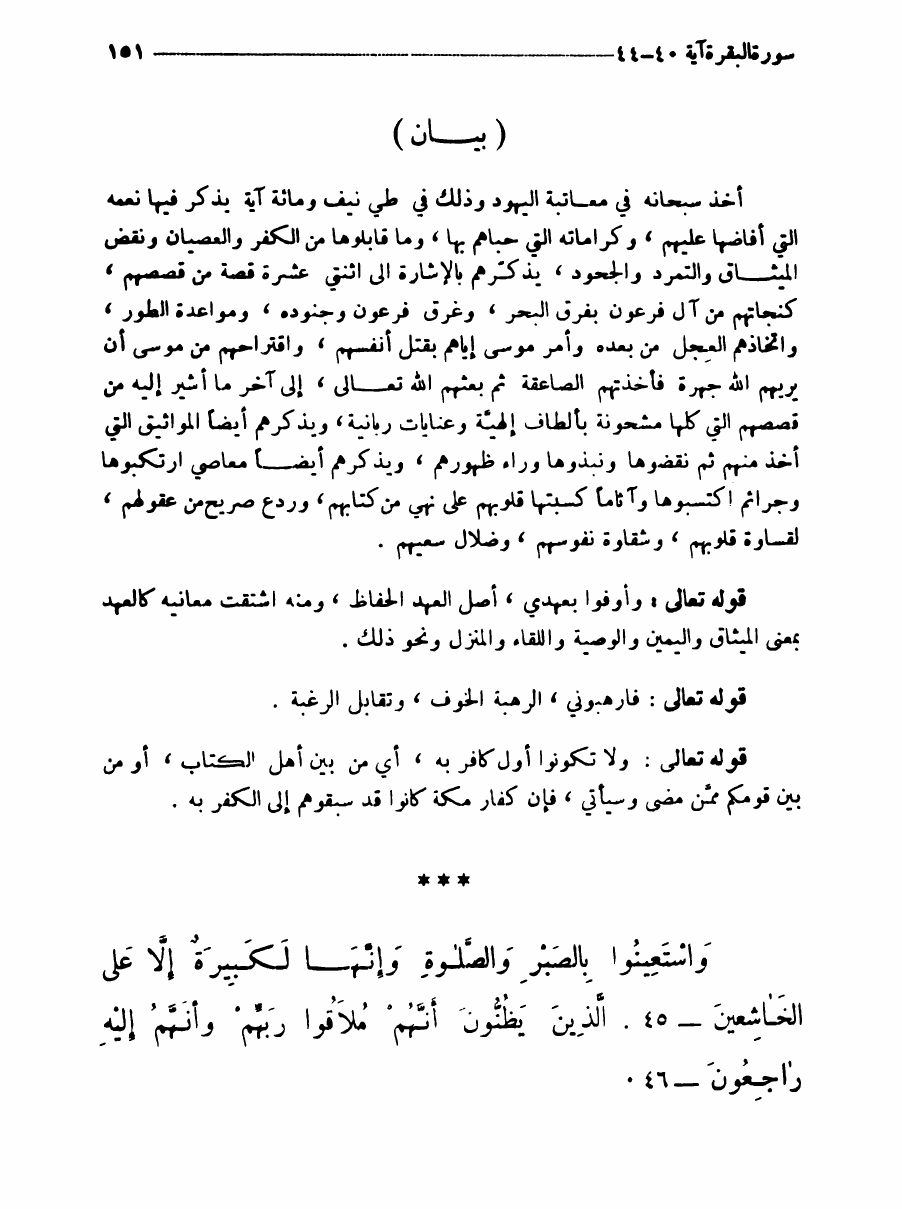 سورة البقرة آية ٤٠-٤٤ ١٥١
( بيـــان )
أخذ سبحانه في معـاتبة اليهود وذلك في طي نيف ومائة آية يذكر فيها نعمه
التي أفاضها عليهم ، وكراماته التي حباهم بها ، وما قابلوها من الكفر والعصيان ونقض
الميثـــاق والتمرد والجحود ، يذكّرهم بالإشارة الى اثنتي عشرة قصة من قصصهم ،
كنجاتهم من آل فرعون بفرق البحر ، وغرق فرعون وجنوده ، ومواعدة الطور ،
واتخاذهم العجل من بعده وأمر موسى إياهم بقتل أنفسهم ، واقتراحهم من موسى أن
يريهم الله جهرة فأخذتهم الصاعقة ثم بعثهم الله تعـــالى ، إلى آخر ما أشير إليه من
قصصهم التي كلها مشحونة بألطاف إلهيّة وعنايات ربانية، ويذكرهم أيضاً المواثيق التي
أخذ منهم ثم نقضوها ونبذوها وراء ظهورهم ، ويذكرهم أيضـــاً معاصي ارتكبوها
وجرائم اكتسبوها وآثاماً كسبتها قلوبهم على نهي من كتابهم، وردع صريح من عقولهم ،
لقساوة قلوبهم ، وشقاوة نفوسهم ، وضلال سعيهم .
قوله تعالى : وأوفوا بعهدي ، أصل العهد الحفاظ ، ومنه اشتقت معانيه كالعهد
بمعنى الميثاق واليمين والوصية واللقاء والمنزل ونحو ذلك .
قوله تعالى : فارهبوني ، الرهبة الخوف ، وتقابل الرغبة .
قوله تعالى : ولا تكونوا أول كافر به ، أي من بين أهل الكتاب ، أو من
بين قومكم ممّن مضى وسيأتي ، فإن كفار مكة كانوا قد سبقوهم إلى الكفر به .
* * *
وَاسْتَعِينُوا بِالصَبْرِ وَالصَّلٰوةِ وَإِنَّهَـــا لَكَبِيرَةٌ إِلَّا عَلى
الخَاشِعينَ – ٤٥ . الَّذِينَ يَظُنُّونَ أَنَّهُمْ مُلَاقُوا رَبِّهِمْ وأَنَّهُمْ إِلَيْهِ
رَاجِعُونَ – ٤٦ .